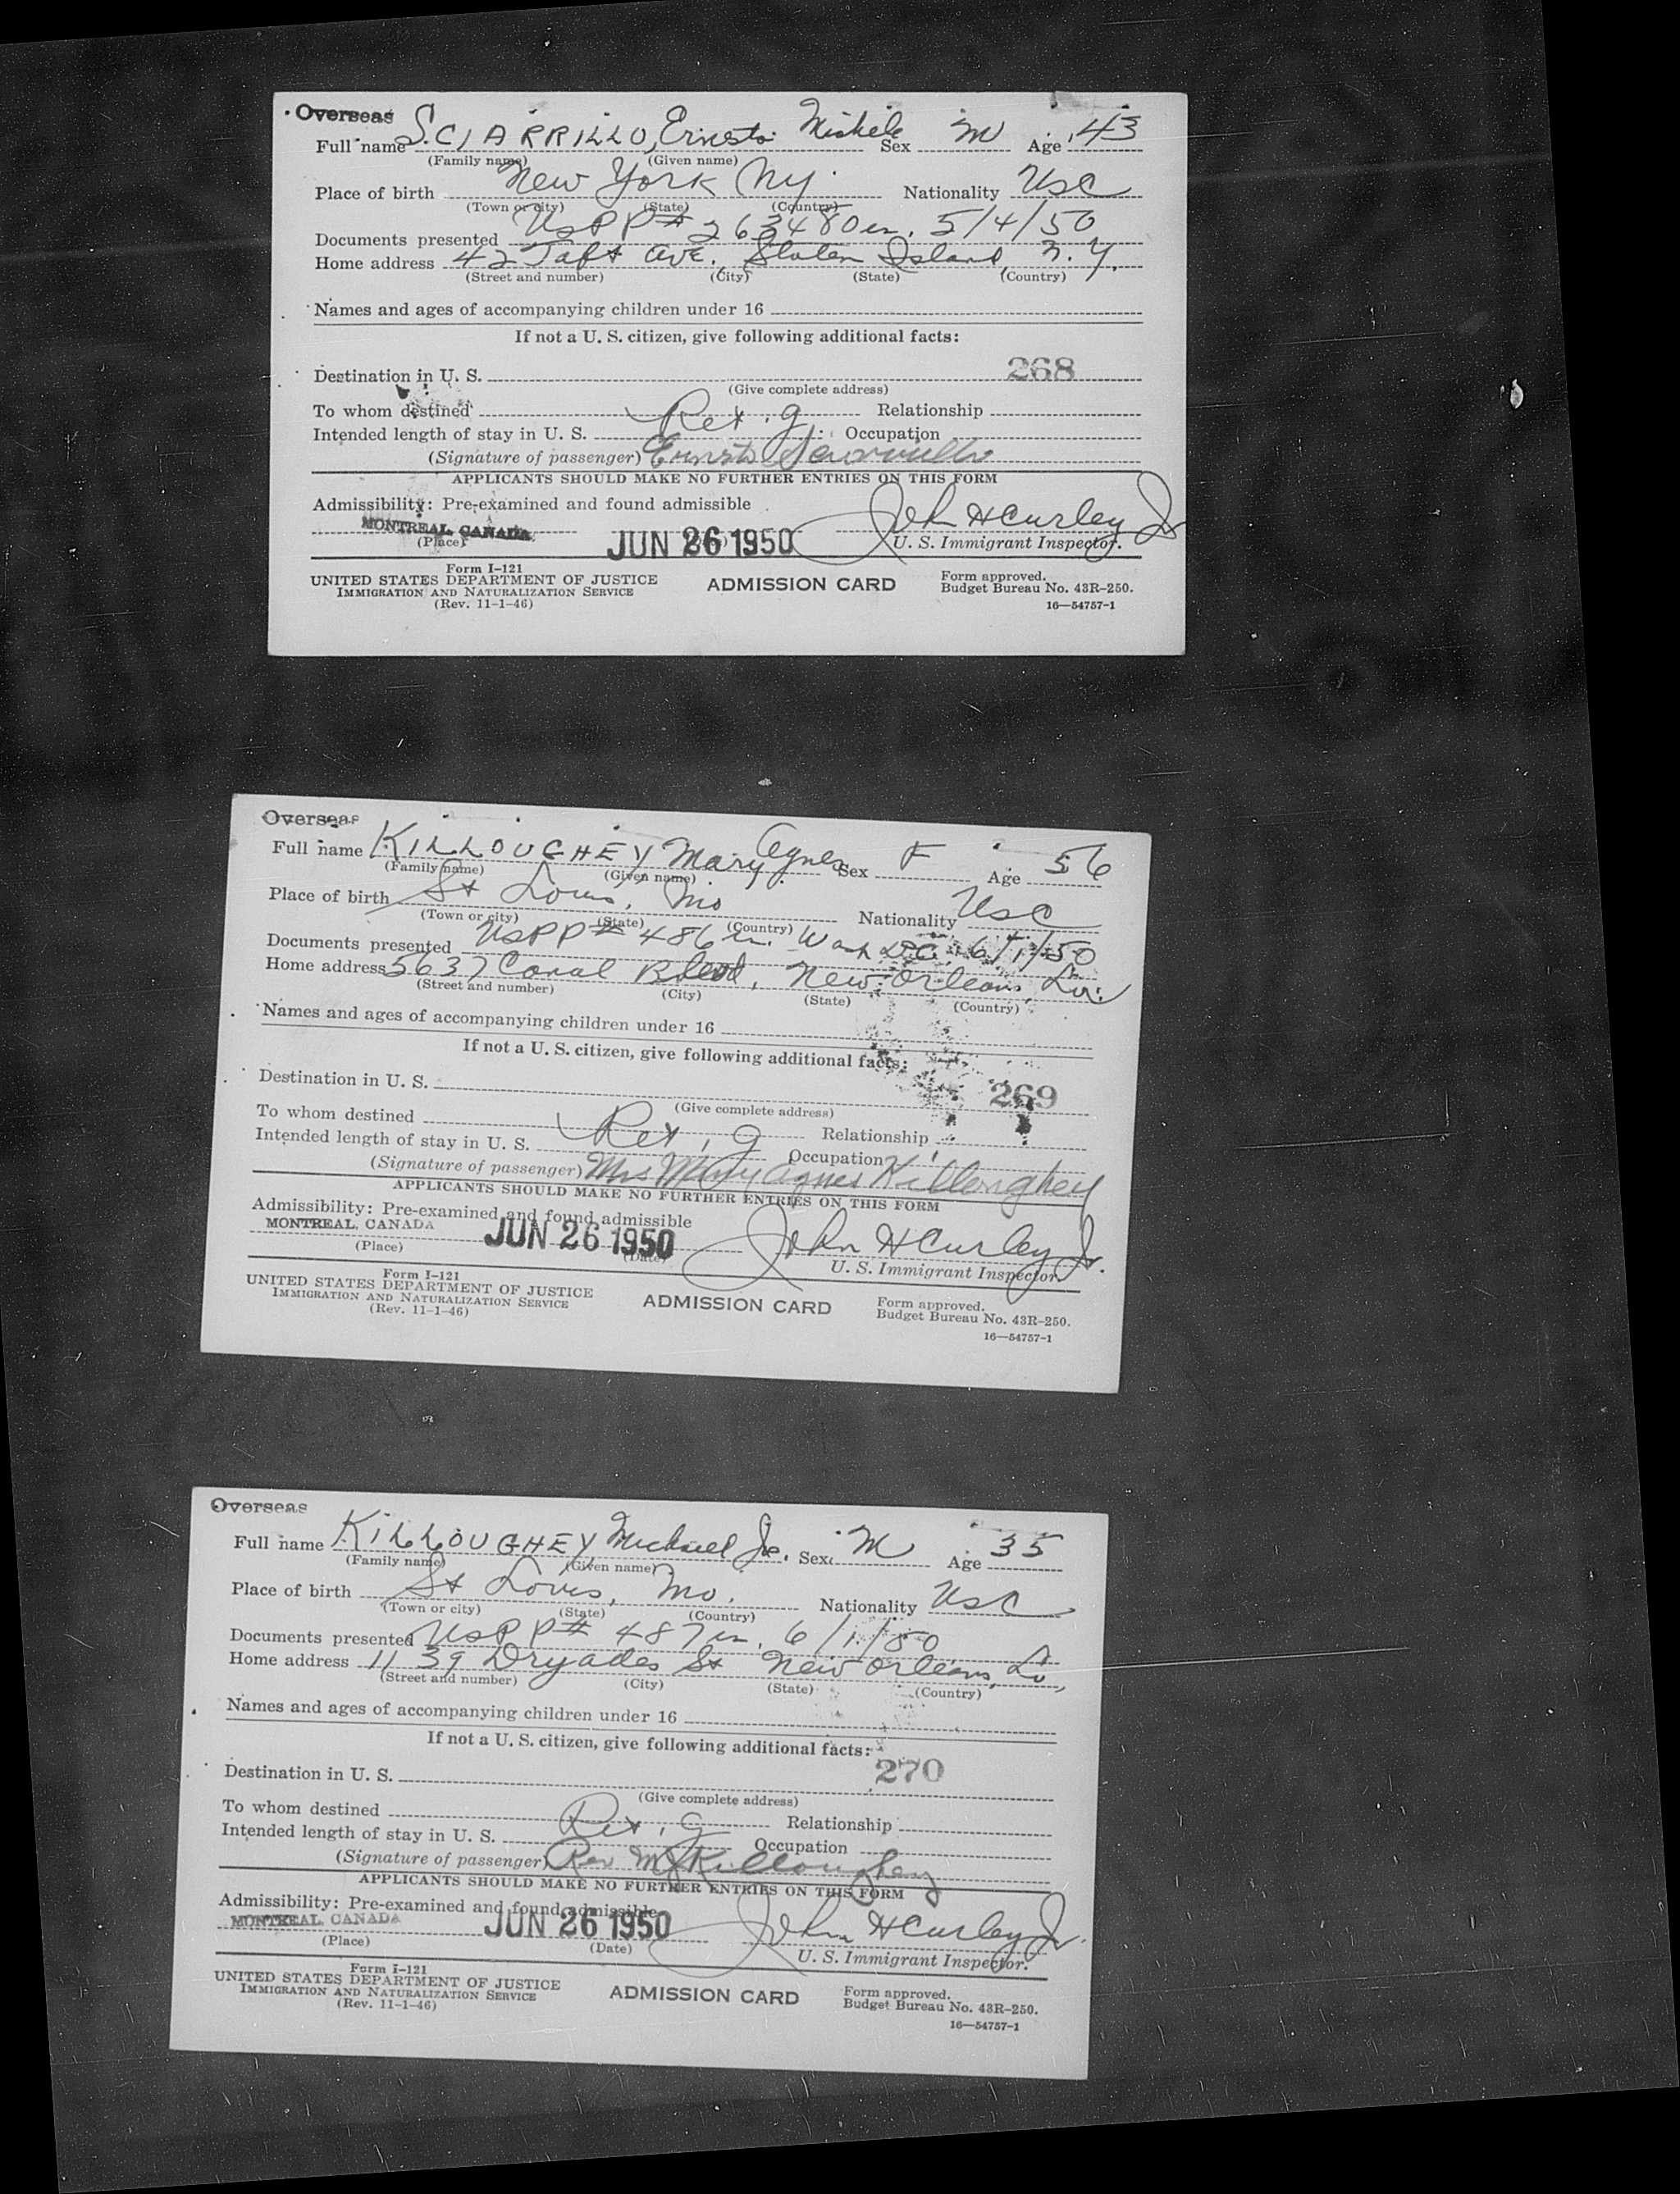 Overseas
Full name SCIARRILLO, Ernesto Michele Sex M Age 43
(Family name) (Given name)
Place of birth New York Ny. Nationality USC
(Town or city) (State) (Country)
Documents presented USPP# 263480 5/4/50
Home address 42 Taft ave. Staten Island, N.Y.
(Street and number) (City) (State) (Country)
Names and ages of accompanying children under 16
If not a U. S. citizen, give following additional facts:
268
Destination in U. S.
(Give complete address)
To whom destined Relationship
Intended length of stay in U. S. Occupation
(Signature of passenger) Ernesto Sciarrillo
APPLICANTS SHOULD MAKE NO FURTHER ENTRIES ON THIS FORM
Admissibility: Pre-examined and found admissible
MONTREAL, CANADA JUN 26 1950 John H Curley Jr
(Place) U. S. Immigrant Inspector.
Form I-121
UNITED STATES DEPARTMENT OF JUSTICE
IMMIGRATION AND NATURALIZATION SERVICE
(Rev. 11-1-46)
ADMISSION CARD
Form approved.
Budget Bureau No. 43R-250.
16—54757-1
Overseas
Full name KILLOUGHEY Mary Agnes Sex F Age 56
(Family name) (Given name)
Place of birth St Louis, Mo Nationality USC
(Town or city) (State) (Country)
Documents presented USPP# 486 Wash D.C. 6/1/50
Home address 5637 Canal Blvd, New Orleans, La.
(Street and number) (City) (State) (Country)
Names and ages of accompanying children under 16
If not a U. S. citizen, give following additional facts:
269
Destination in U. S.
(Give complete address)
To whom destined Relationship
Intended length of stay in U. S. Occupation
(Signature of passenger) Mrs Mary Agnes Killoughey
APPLICANTS SHOULD MAKE NO FURTHER ENTRIES ON THIS FORM
Admissibility: Pre-examined and found admissible
MONTREAL, CANADA JUN 26 1950 John H Curley Jr.
(Place) (Date) U. S. Immigrant Inspector.
Form I-121
UNITED STATES DEPARTMENT OF JUSTICE
IMMIGRATION AND NATURALIZATION SERVICE
(Rev. 11-1-46)
ADMISSION CARD
Form approved.
Budget Bureau No. 43R-250.
16—54757-1
Overseas
Full name KILLOUGHEY Michael Jr. Sex M Age 35
(Family name) (Given name)
Place of birth St Louis, Mo. Nationality USC
(Town or city) (State) (Country)
Documents presented USPP# 487 6/1/50
Home address 1139 Dryades St New Orleans, La,
(Street and number) (City) (State) (Country)
Names and ages of accompanying children under 16
If not a U. S. citizen, give following additional facts:
270
Destination in U. S.
(Give complete address)
To whom destined Relationship
Intended length of stay in U. S. Occupation
(Signature of passenger) Rev MJ Killoughey
APPLICANTS SHOULD MAKE NO FURTHER ENTRIES ON THIS FORM
Admissibility: Pre-examined and found admissible
MONTREAL, CANADA JUN 26 1950 John H Curley Jr.
(Place) (Date) U. S. Immigrant Inspector.
Form I-121
UNITED STATES DEPARTMENT OF JUSTICE
IMMIGRATION AND NATURALIZATION SERVICE
(Rev. 11-1-46)
ADMISSION CARD
Form approved.
Budget Bureau No. 43R-250.
16—54757-1